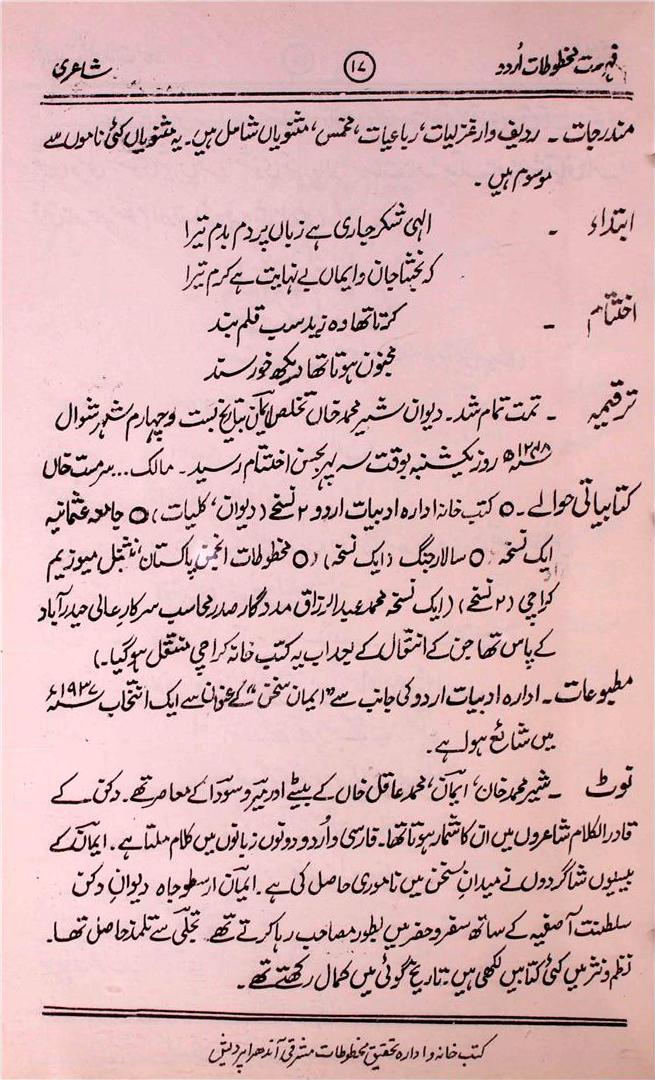 فہرست مخطوطات اُردو ۱۷ شاعری
مندرجات ۔ ردیف وار غزلیات، رباعیات، مخمس، مثنویاں شامل ہیں۔ یہ مثنویاں کئی ناموں سے
موسوم ہیں ۔
ابتداء ۔ الٰہی شکر جاری ہے زباں پر دم بدم تیرا
کہ بخشا جان و ایماں بے نہایت ہے کرم تیرا
اختتام ۔ کرتا تھا وہ زید سب قلم بند
مجنون ہوتا تھا دیکھ خورسند
ترقیمہ ۔ تمت تمام شد ۔ دیوان شیر محمد خاں تخلص ایمان بتاریخ بست و چہارم شہر شوال
۱۲۱۸ھ روز یکشنبہ بوقت سہ پہر بحسن اختتام رسید ۔ مالک ... سرمست خاں
کتابیاتی حوالے ۔ ○ کتب خانہ ادارہ ادبیات اردو ۲ نسخے (دیوان، کلیات) ○ جامعہ عثمانیہ
ایک نسخہ ○ سالار جنگ (ایک نسخہ) ○ مخطوطات انجمن پاکستان، نیشنل میوزیم
کراچی (۲ نسخے) (ایک نسخہ محمد عبدالرزاق مددگار صدر محاسب سرکار عالی حیدرآباد
کے پاس تھا جن کے انتقال کے بعد اب یہ کتب خانہ کراچی منتقل ہو گیا۔)
مطبوعات ۔ ادارہ ادبیات اردو کی جانب سے "ایمان سخن" کے عنوان سے ایک انتخاب ۱۹۳۷ء
میں شائع ہوا ہے ۔
نوٹ ۔ شیر محمد خان، ایمان، محمد عاقل خاں کے بیٹے اور میر و سودا کے معاصر تھے ۔ دکن کے
قادر الکلام شاعروں میں ان کا شمار ہوتا تھا۔ فارسی و اُردو دونوں زبانوں میں کلام ملتا ہے ۔ ایمان کے
بیسیوں شاگردوں نے میدانِ سخن میں ناموری حاصل کی ہے ۔ ایمان ارسطو جاہ دیوانِ دکن
سلطنت آصفیہ کے ساتھ سفر و حضر میں بطور مصاحب رہا کرتے تھے ۔ تجلی سے تلمذ حاصل تھا۔
نظم و نثر میں کئی کتابیں لکھی ہیں۔ تاریخ گوئی میں کمال رکھتے تھے ۔
کتب خانہ و ادارہ تحقیق مخطوطات مشرقی آندھرا پردیش